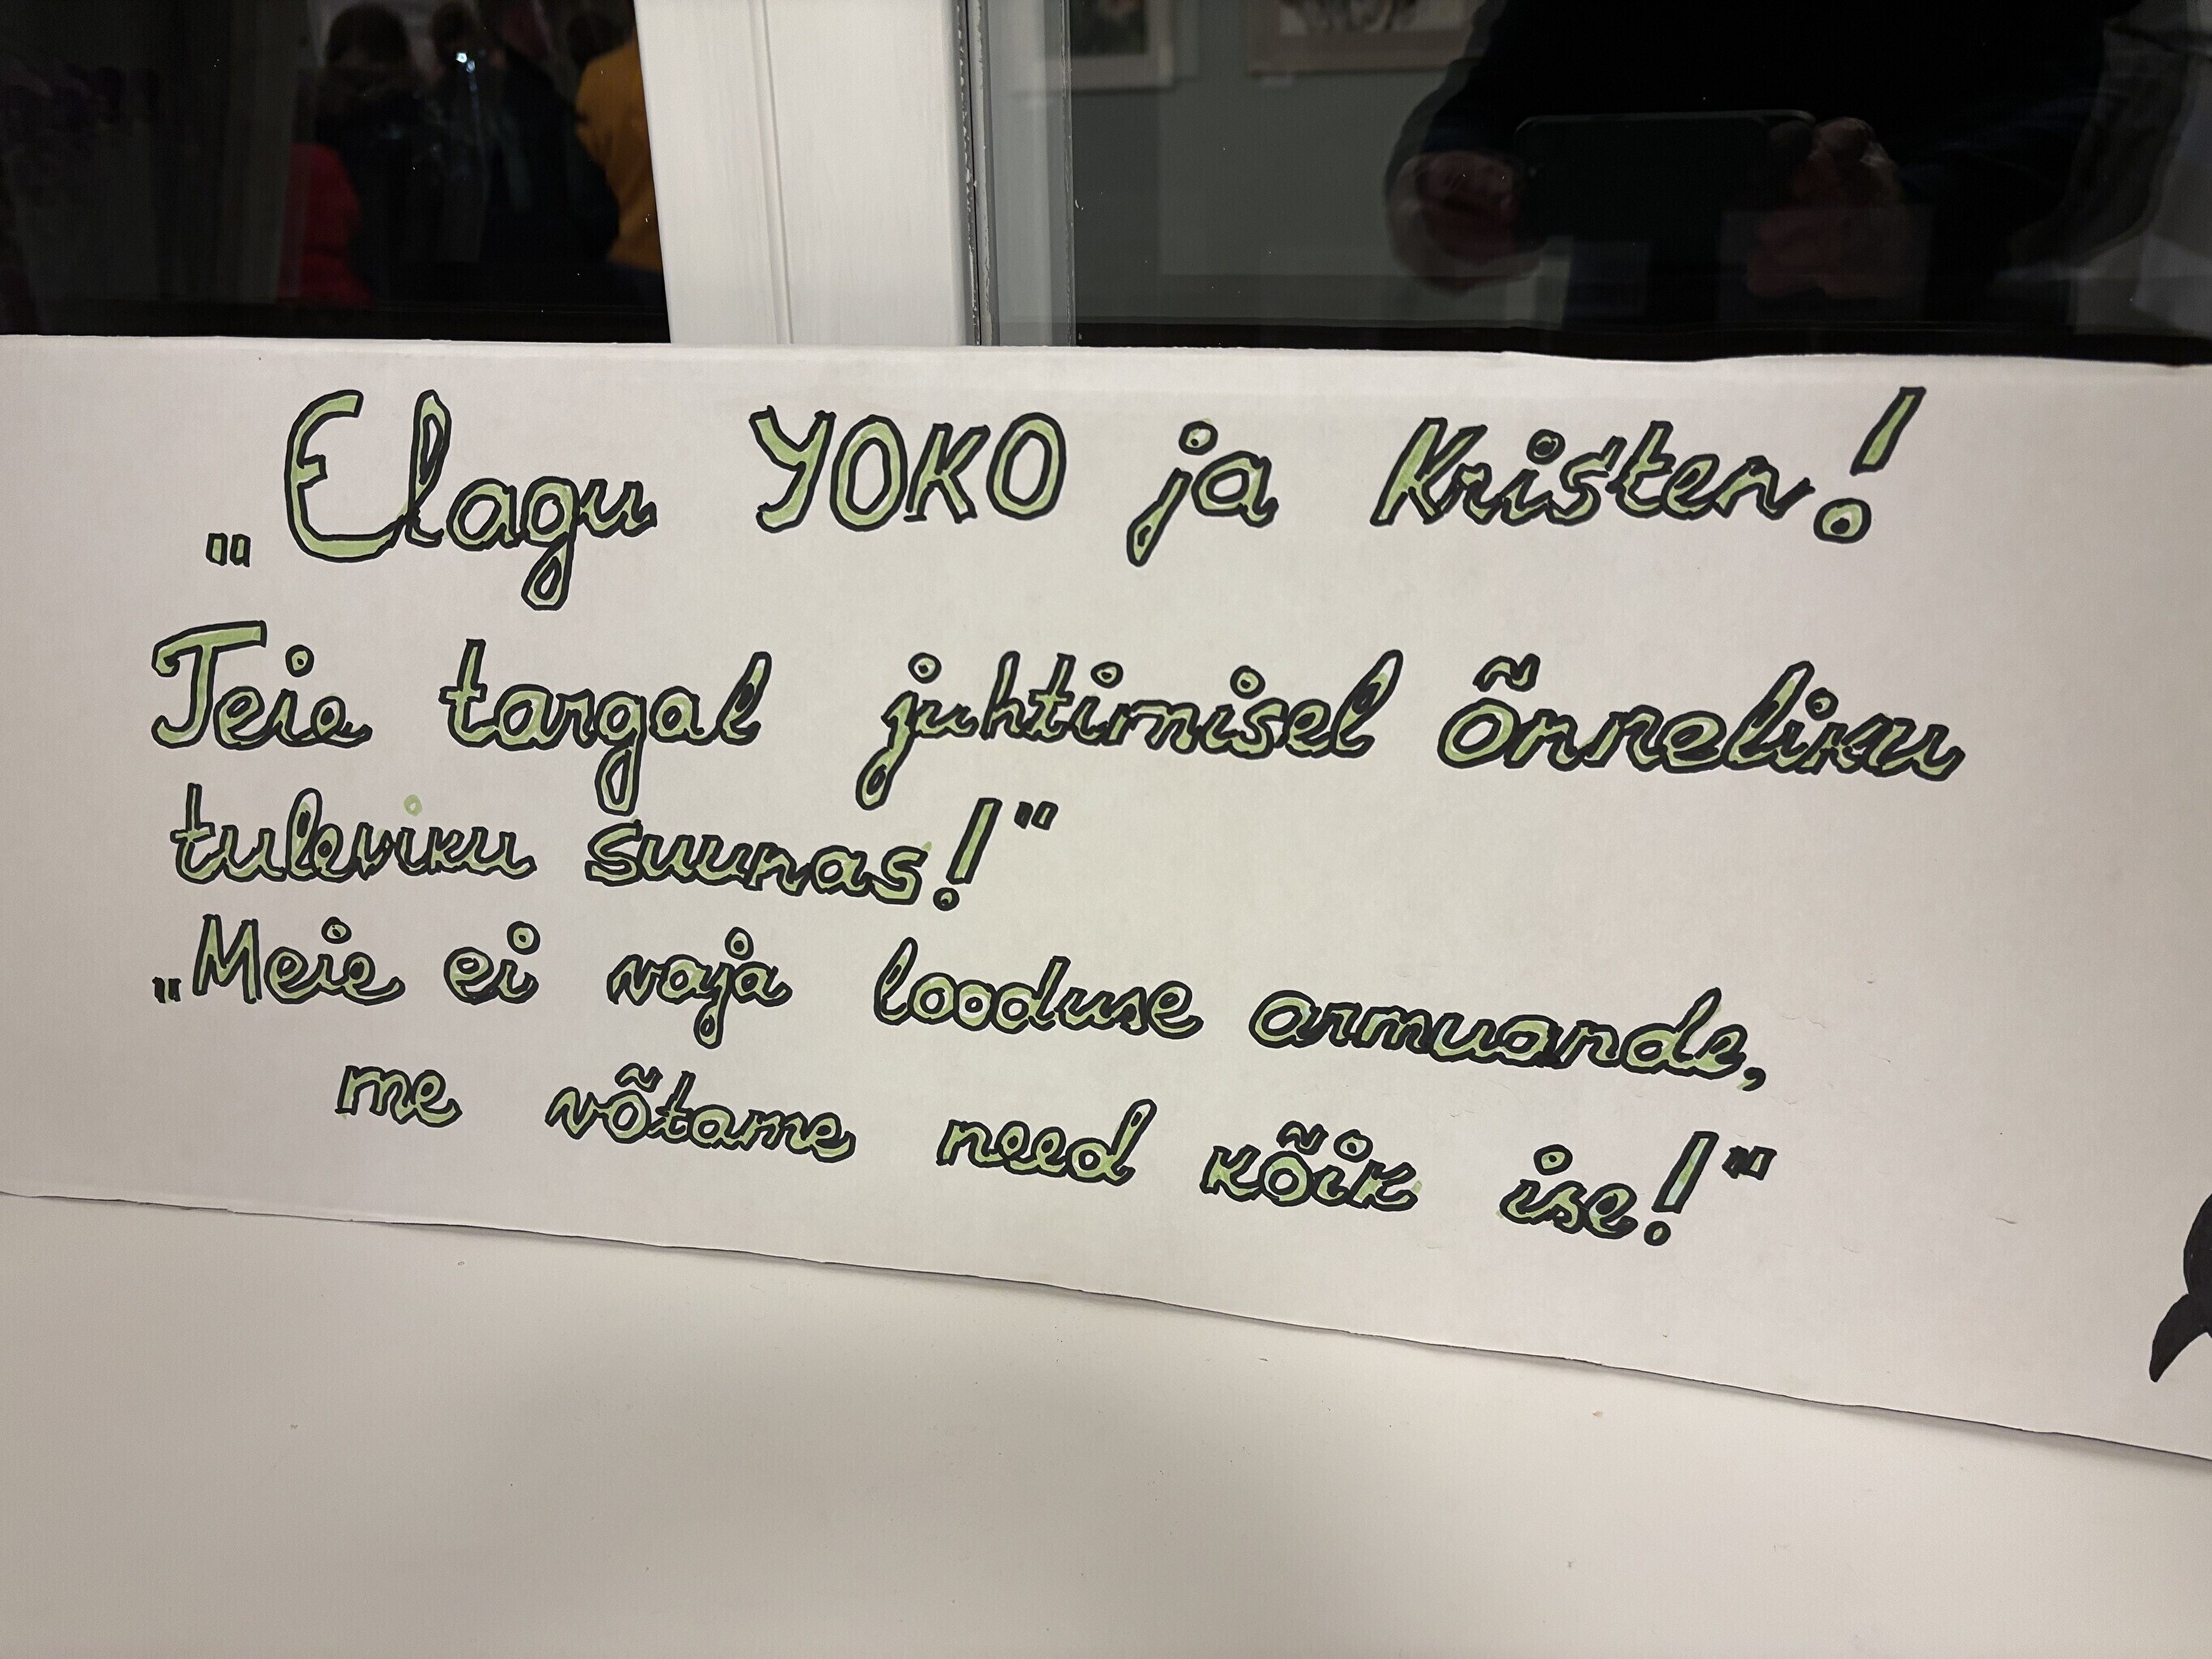 „Elagu YOKO ja Kristen!
Teie targal juhtimisel õnneliku
tuleviku suunas!"
„Meie ei vaja looduse armuande,
me võtame need kõik ise!"